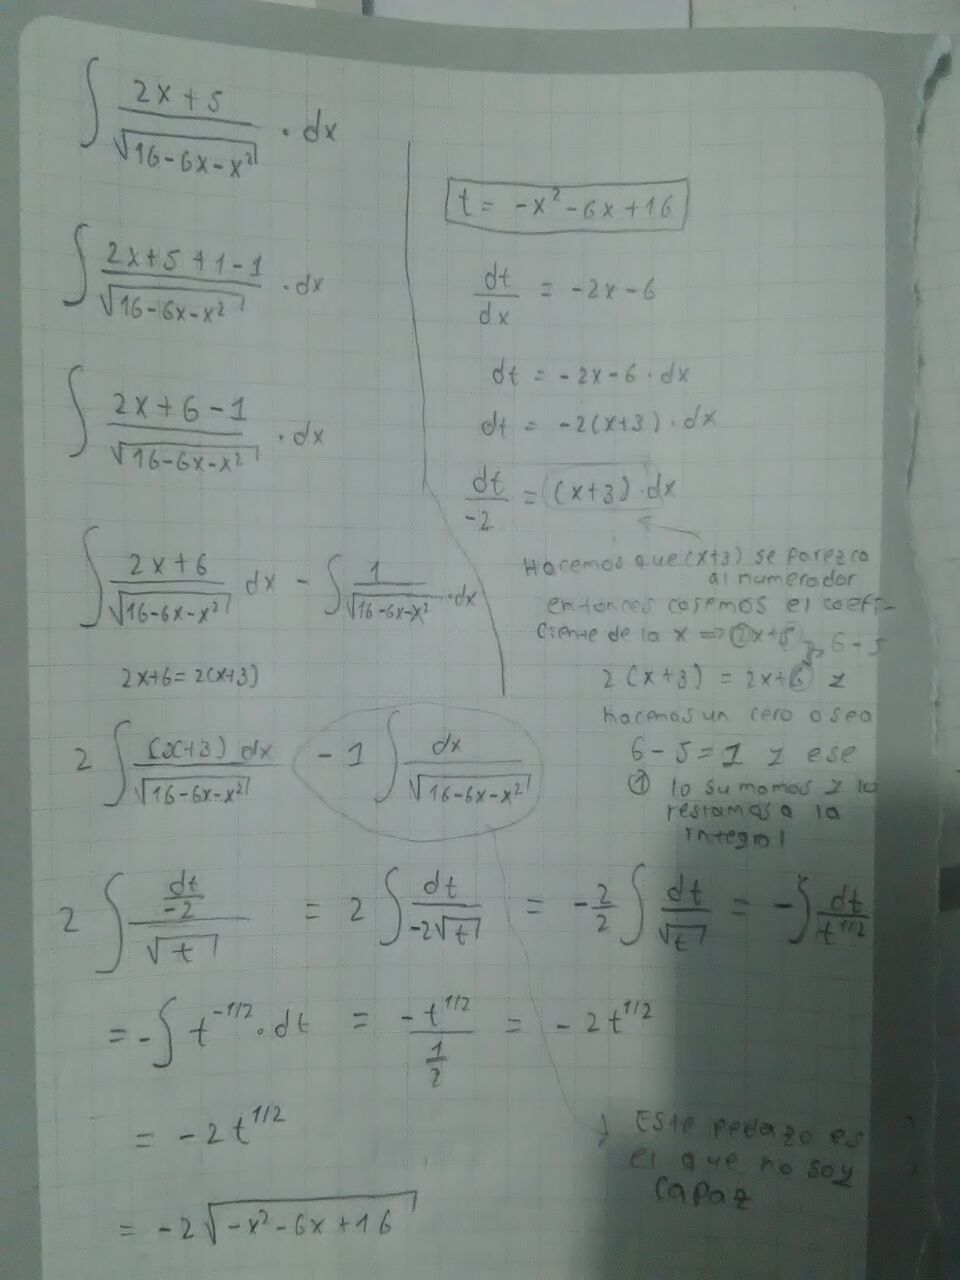 ∫ (2x+5)/√(16-6x-x²) · dx
∫ (2x+5+1-1)/√(16-6x-x²) · dx
∫ (2x+6-1)/√(16-6x-x²) · dx
∫ (2x+6)/√(16-6x-x²) dx - ∫ 1/√(16-6x-x²) · dx
2x+6=2(x+3)
2 ∫ (x+3) dx/√(16-6x-x²) - 1 ∫ dx/√(16-6x-x²)
t = -x²-6x+16
dt/dx = -2x-6
dt = -2x-6 · dx
dt = -2(x+3) · dx
dt/-2 = (x+3) · dx
Hacemos que (x+3) se parezca
al numerador
entonces cojemos el coefi-
ciente de la x => 2x+5 6-5
2(x+3) = 2x+6 y
hacemos un cero o sea
6-5=1 y ese
① lo sumamos y lo
restamos a la
integral
2 ∫ (dt/-2)/√t = 2 ∫ dt/(-2√t) = -2/2 ∫ dt/√t = -∫ dt/t^1/2
= -∫ t^-1/2 · dt = -t^1/2/(1/2) = -2t^1/2
= -2t^1/2
= -2√(-x²-6x+16)
Este pedazo es
el que no soy
capaz